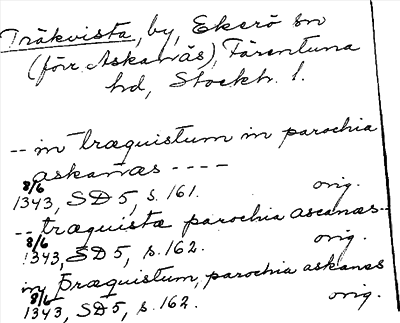 Träkvista, by, Ekerö sn
(förr Askanäs), Färentuna
hd, Stockh. l.
-- in træquistum in parochia
askanæs ----
8/6
1343, SD 5, s. 161. orig.
-- træquistæ parochia ascanæs--
8/6
1343, SD 5, s. 162. orig.
in þræquistum, parochia askanæs
8/6
1343, SD 5, s. 162. orig.